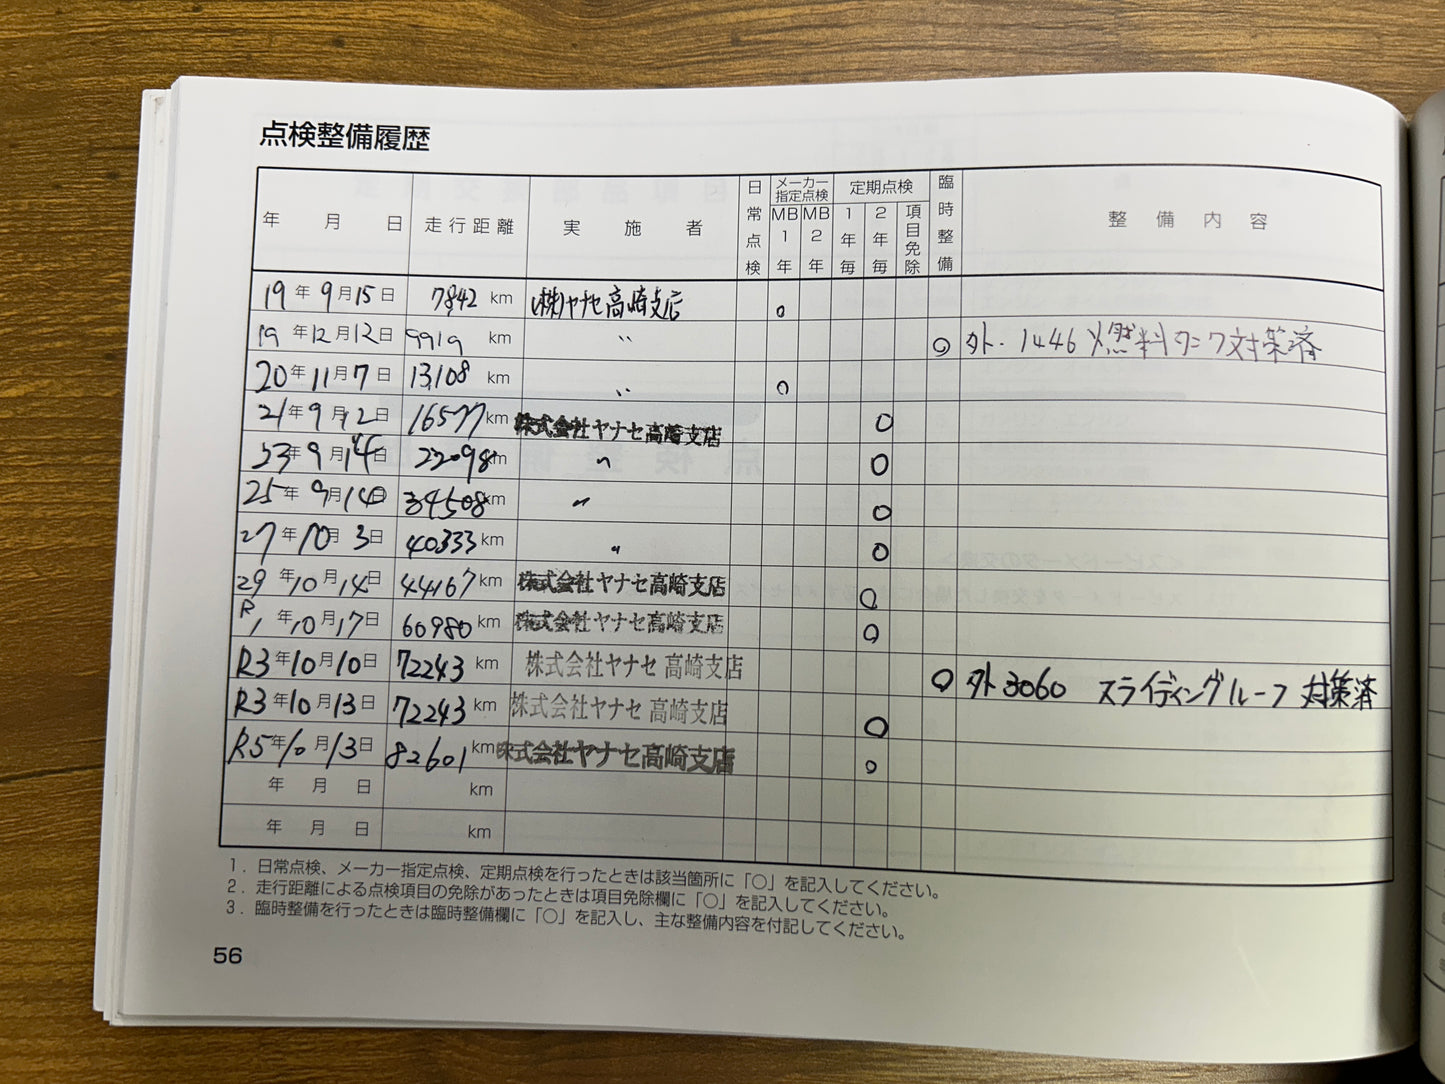 点検整備履歴
年 月 日 走行距離 実施者 日常点検 メーカー指定点検 MB1年 MB2年 定期点検 1年毎 2年毎 項目免除 臨時整備 整備内容
19年9月15日 7842 km (株)ヤナセ高崎支店 ○
19年12月12日 9919 km 〃 ○ 外-1446 燃料タンク対策済
20年11月7日 13,108 km 〃 ○
21年9月12日 16577 km 株式会社ヤナセ高崎支店 ○
23年9月14日 22098 km 〃 ○
25年9月14日 34508 km 〃 ○
27年10月3日 40333 km 〃 ○
29年10月14日 44167 km 株式会社ヤナセ高崎支店 ○
R1年10月17日 60980 km 株式会社ヤナセ高崎支店 ○
R3年10月10日 72243 km 株式会社ヤナセ 高崎支店 ○ 外3060 スライディングルーフ 対策済
R3年10月13日 72243 km 株式会社ヤナセ 高崎支店 ○
R5年10月13日 82601 km 株式会社ヤナセ高崎支店 ○
年 月 日 km
年 月 日 km
1. 日常点検、メーカー指定点検、定期点検を行ったときは該当箇所に「○」を記入してください。
2. 走行距離による点検項目の免除があったときは項目免除欄に「○」を記入してください。
3. 臨時整備を行ったときは臨時整備欄に「○」を記入し、主な整備内容を付記してください。
56